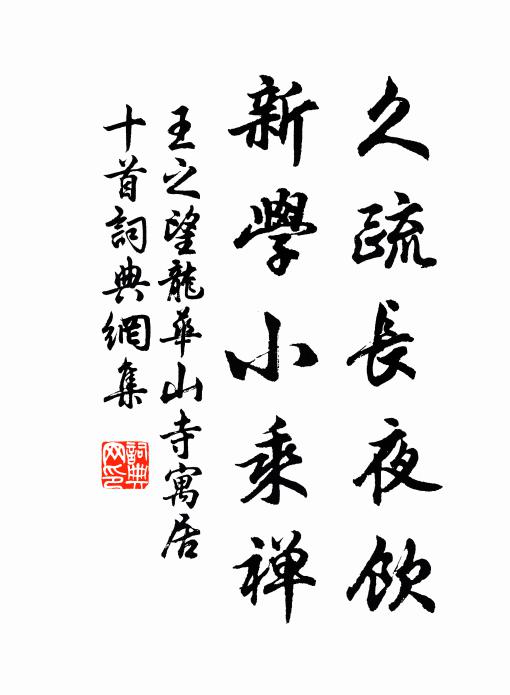 久疏長夜飲
新學小乘禅
王之望龍華山寺寓居
十首詞典網集
詞典
网印